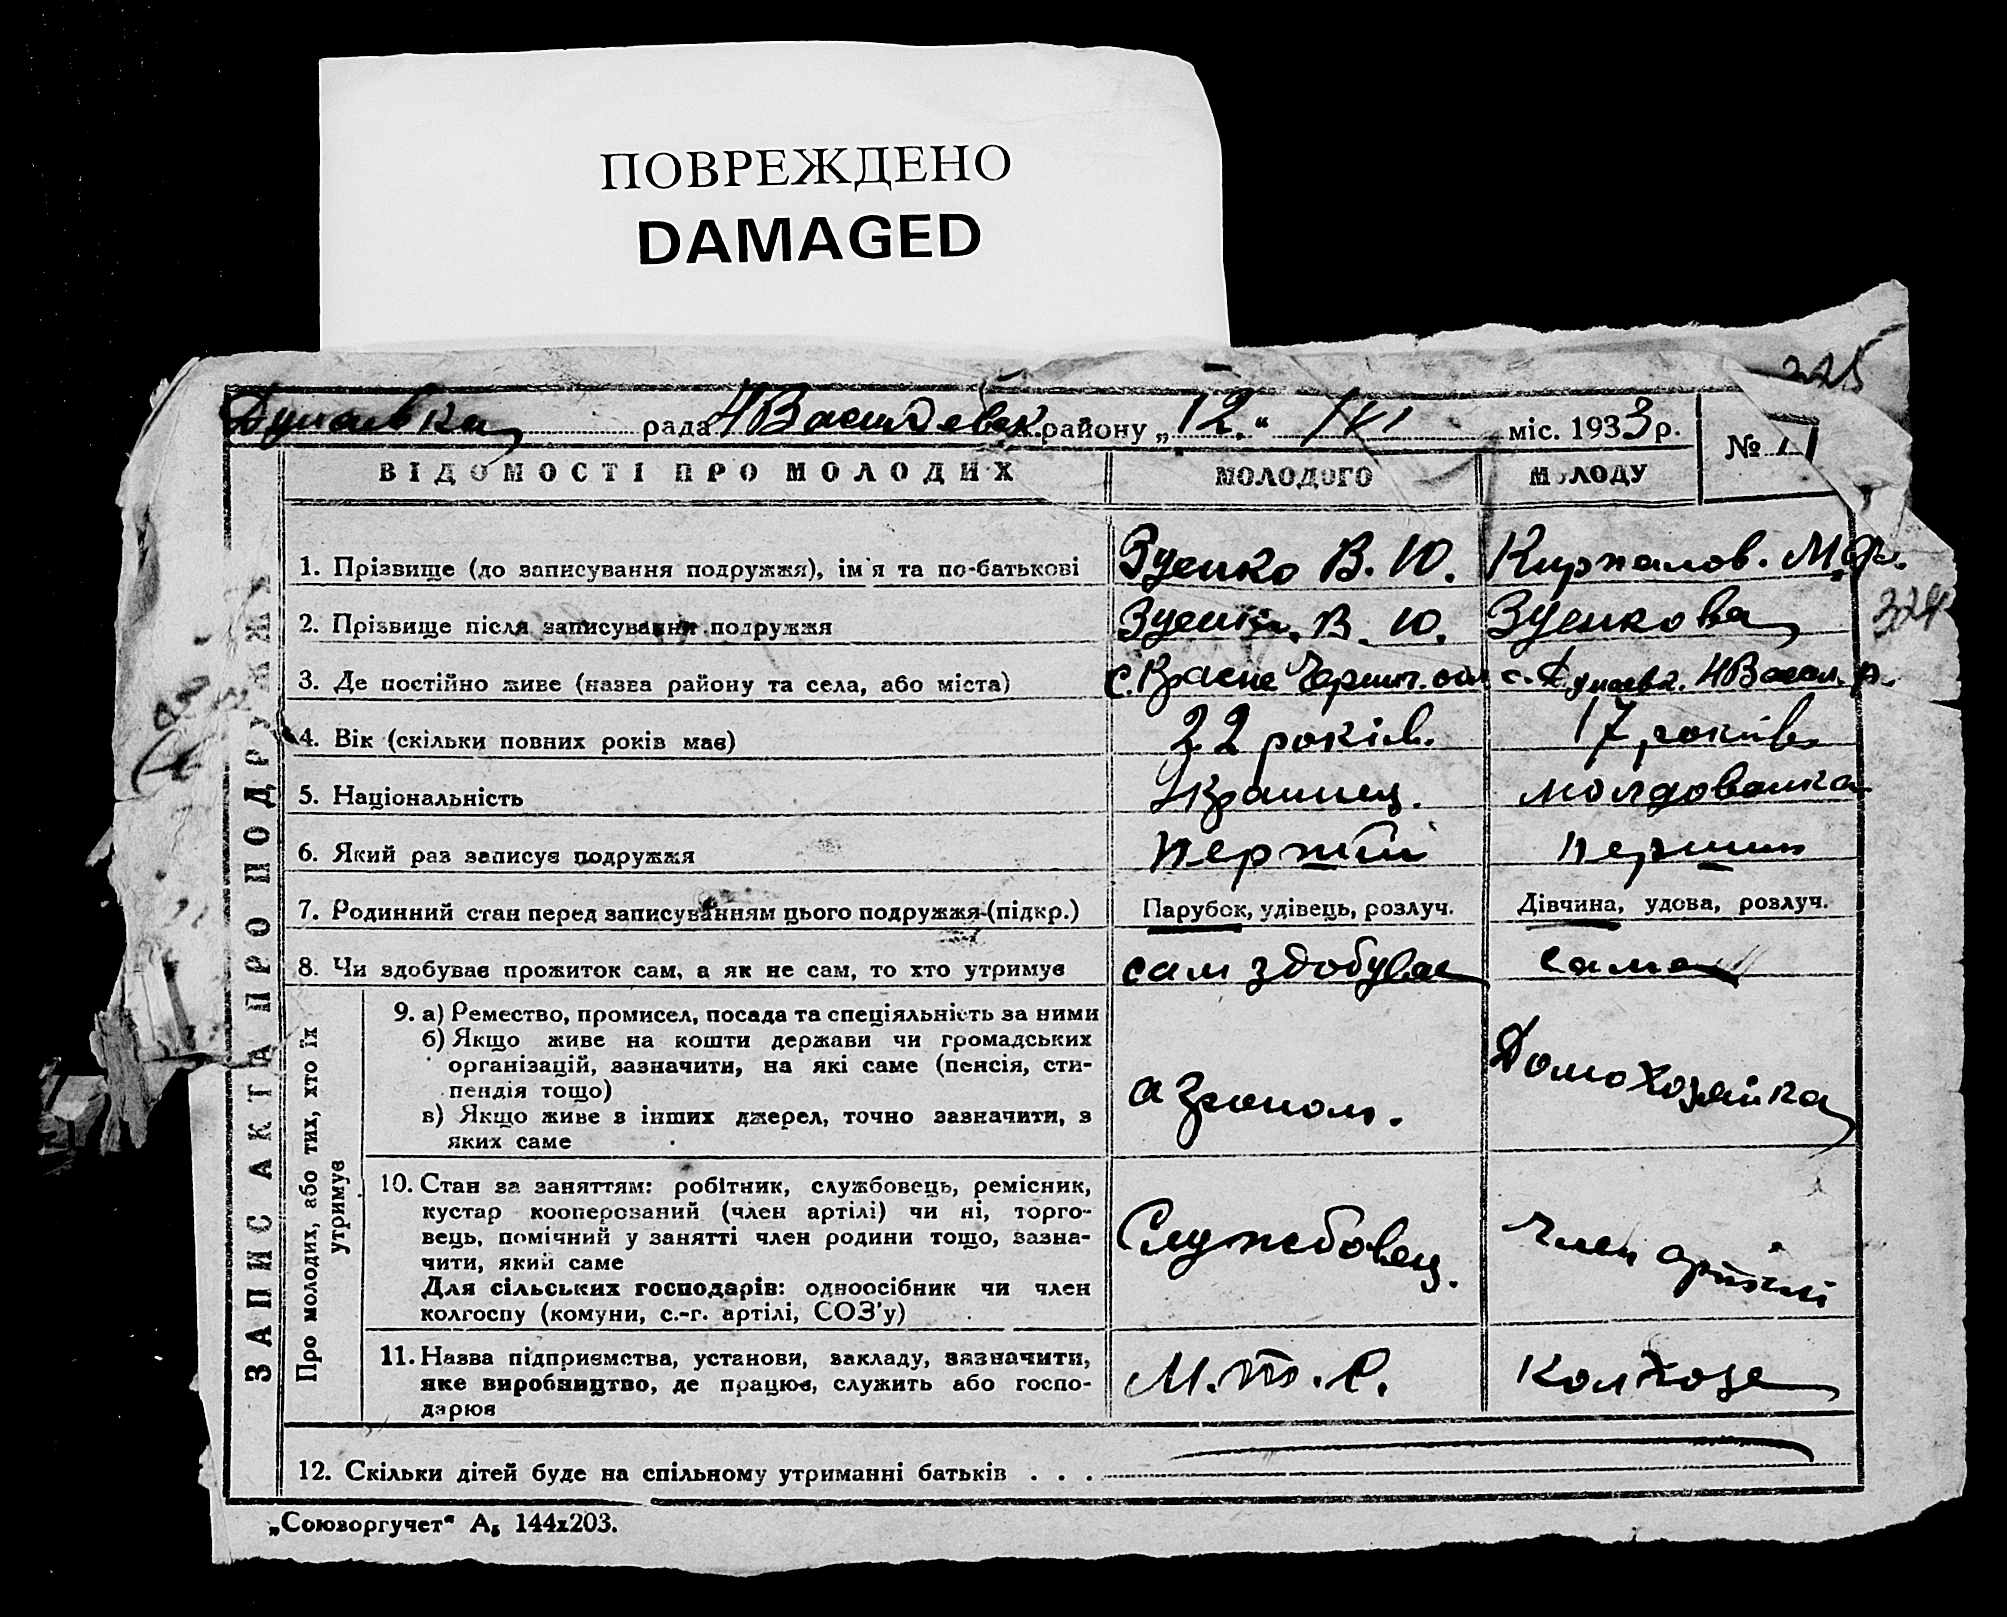 ПОВРЕЖДЕНО
DAMAGED
225
Дунаевка рада НВасилевск. району „12.“ III міс. 1933 р. № 1
ВІДОМОСТІ ПРО МОЛОДИХ МОЛОДОГО МОЛОДУ
1. Прізвище (до записування подружжя), ім'я та по-батькові Зуенко В. Ю. Киржалов. М.Ф.
2. Прізвище після записування подружжя Зуенко. В. Ю. Зуенкова
324
3. Де постійно живе (назва району та села, або міста) с. Красне Черниг. обл с. Дунаевк. НВасил. р.
4. Вік (скільки повних років має) 22 років. 17 років
5. Національність Украинец. молдованка
6. Який раз записує подружжя перший перший
7. Родинний стан перед записуванням цього подружжя (підкр.) Парубок, удівець, розлуч. Дівчина, удова, розлуч.
8. Чи здобуває прожиток сам, а як не сам, то хто утримує сам здобувае сама
9. а) Ремество, промисел, посада та спеціяльність за ними
б) Якщо живе на кошти держави чи громадських
організацій, зазначити, на які саме (пенсія, сти-
пендія тощо)
в) Якщо живе з інших джерел, точно зазначити, з
яких саме
агроном. Домохозяйка
10. Стан за заняттям: робітник, службовець, ремісник,
кустар кооперований (член артілі) чи ні, торго-
вець, помічний у занятті член родини тощо, зазна-
чити, який саме
Для сільських господарів: одноосібник чи член
колгоспу (комуни, с.-г. артілі, СОЗ'у)
Службовец. Член артілі
11. Назва підприємства, установи, закладу, зазначити,
яке виробництво, де працює, служить або госпо-
дарює
М.Т.С. Колхозе
12. Скільки дітей буде на спільному утриманні батьків . . .
ЗАПИС АКТА ПРО ПОДРУЖЖЯ
Про молодих, або тих, хто їх
утримує
„Союзоргучет“ А₅ 144х203.